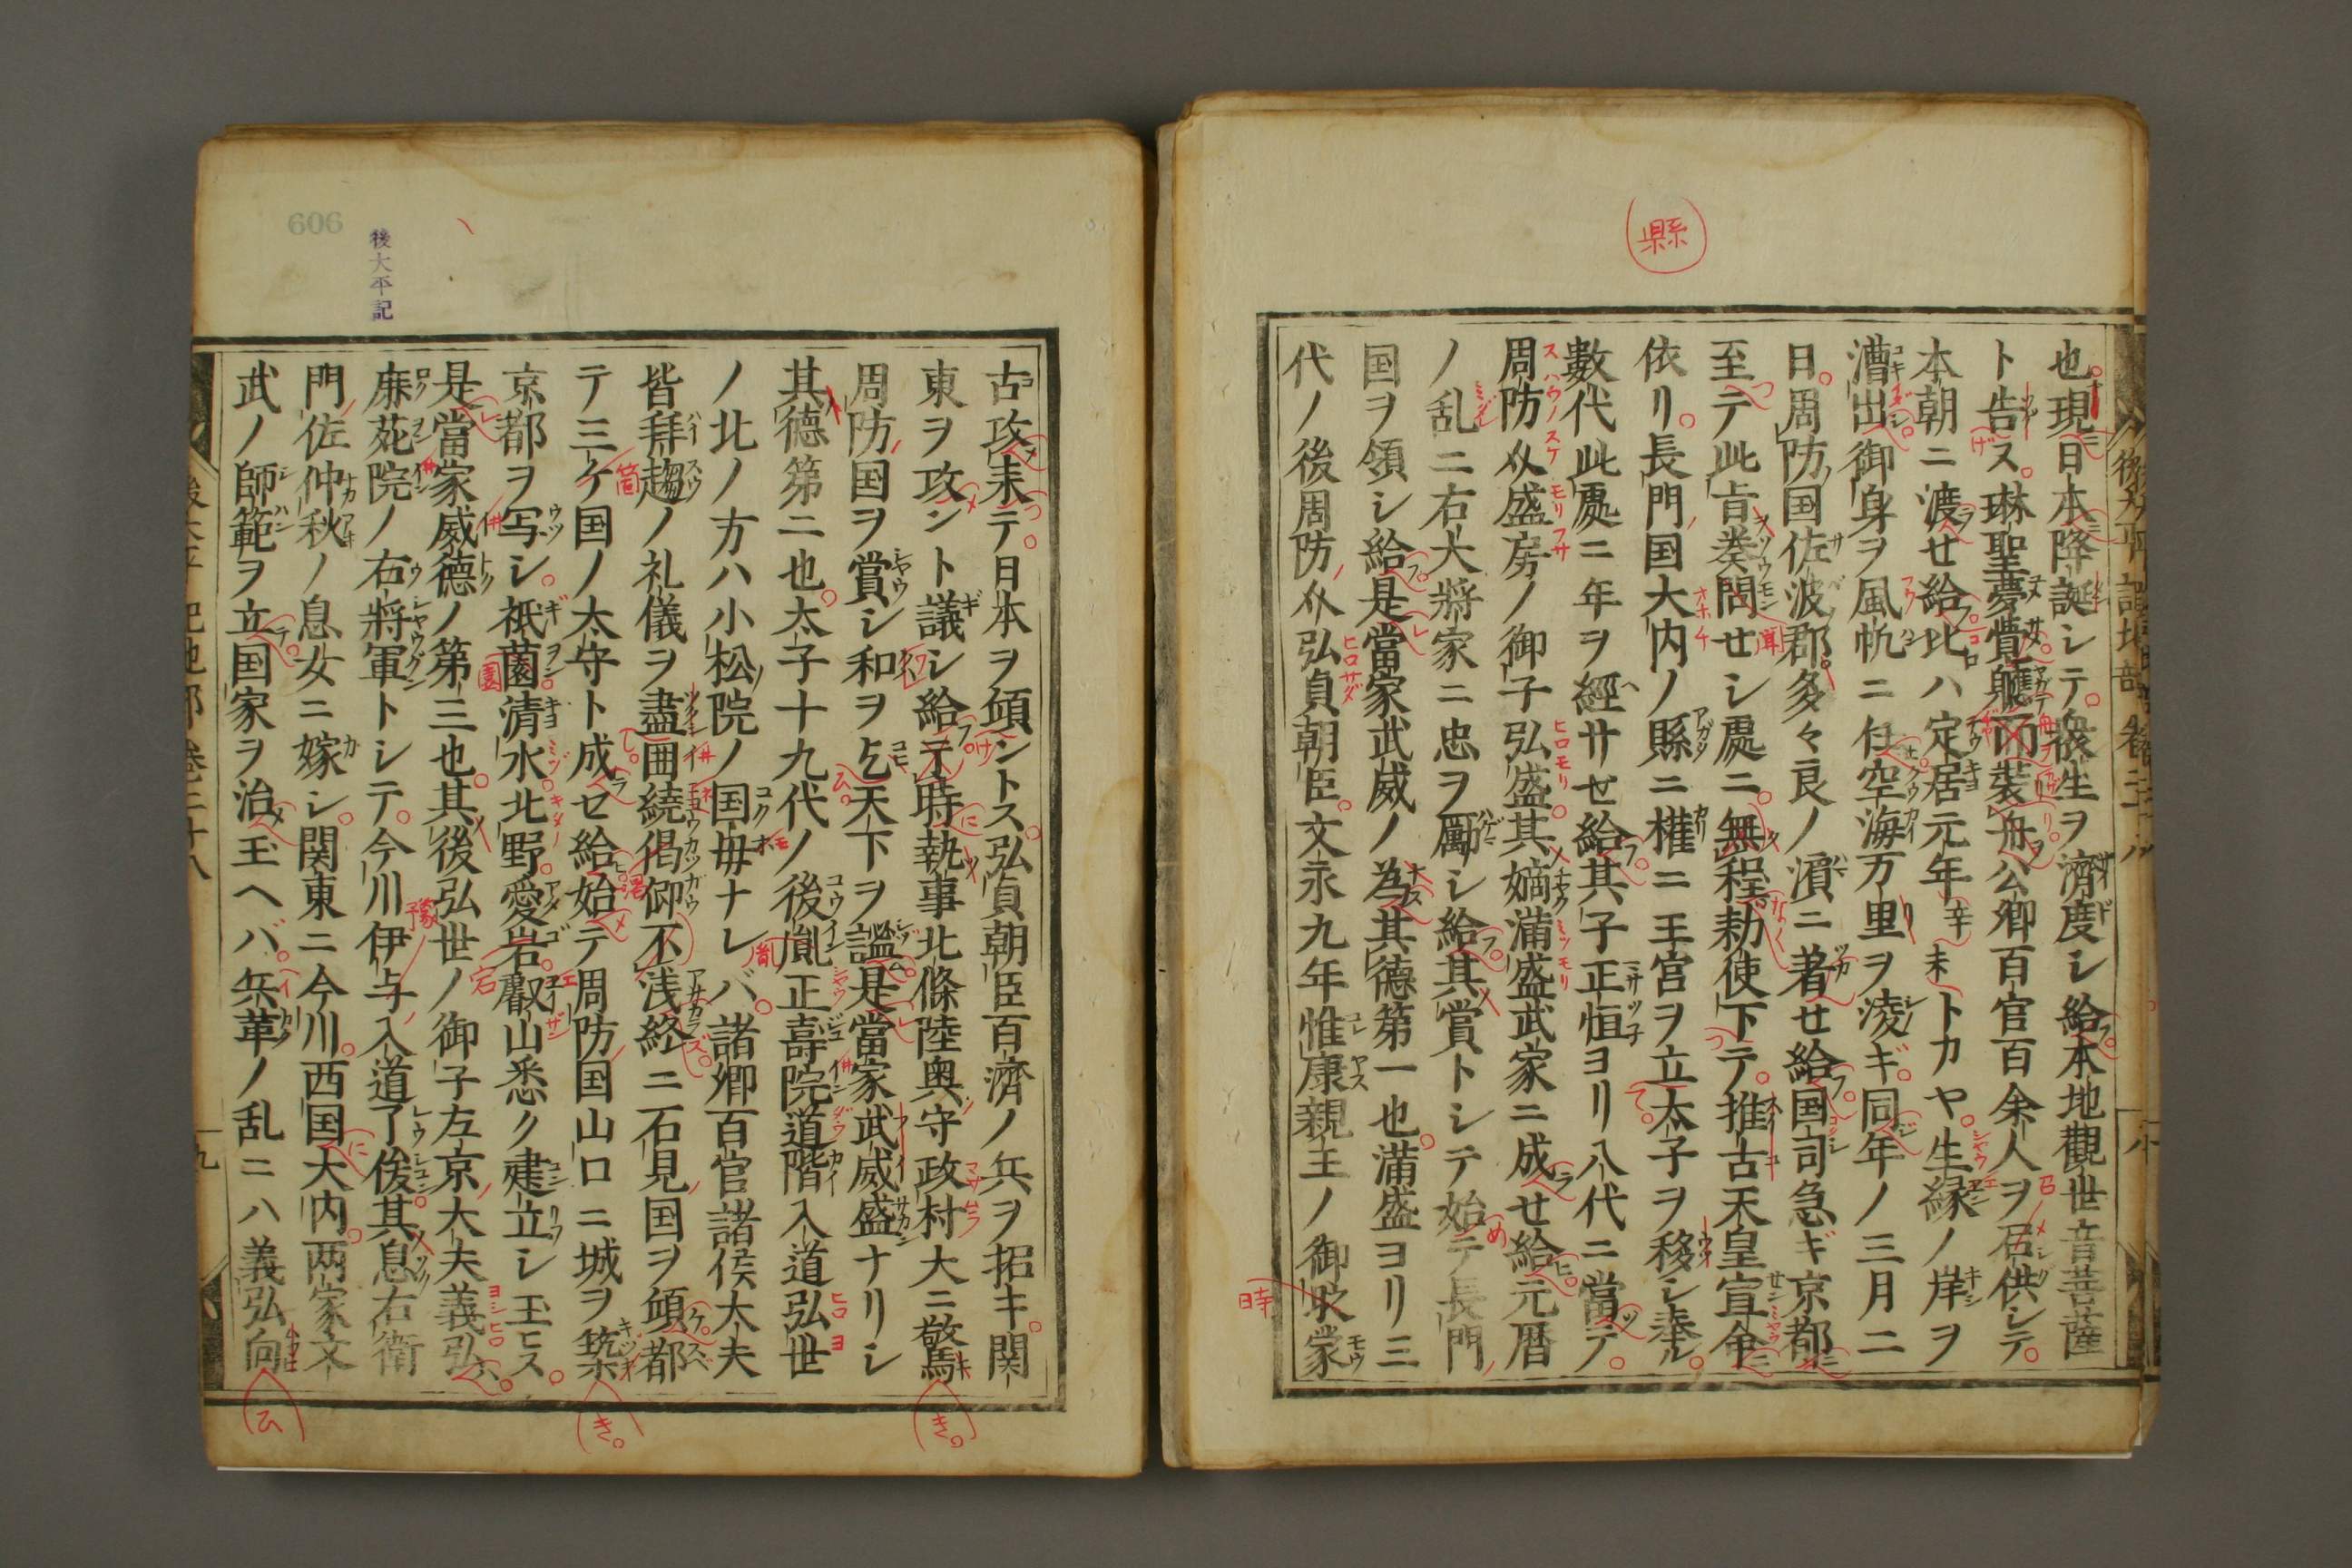 縣
也現日本降誕シテ衆生ヲ濟度シ給本地觀世音菩薩
ト告ス琳聖夢覺軈而裝舟公卿百官百余人ヲ召供シテ
本朝ニ渡せ給比ハ定居元年辛未トカヤ生縁ノ岸ヲ
漕出御身ヲ風帆ニ任空海万里ヲ凌ギ同年ノ三月二
日周防国佐波郡多々良ノ濵ニ着せ給国司急ギ京都
至テ此旨奏問せシ處ニ無程勅使下テ推古天皇宣命
依リ長門国大内ノ縣ニ權ニ王宮ヲ立太子ヲ移シ奉ル
數代此處ニ年ヲ經サせ給其子正恒ヨリ八代ニ當テ
周防介盛房ノ御子弘盛其嫡満盛武家ニ成せ給元暦
ノ乱ニ右大將家ニ忠ヲ勵シ給其賞トシテ始テ長門
国ヲ領シ給是當家武威ノ為其德第一也満盛ヨリ三
代ノ後周防介弘貞朝臣文永九年惟康親王ノ御時蒙
古攻来テ日本ヲ傾ントス弘貞朝臣百濟ノ兵ヲ招キ関
東ヲ攻ント議シ給テ時執事北條陸奥守政村大ニ驚
周防国ヲ賞シ和ヲ乞天下ヲ謐是當家武威盛ナリシ
其德第二也太子十九代ノ後胤正壽院道階入道弘世
ノ北ノ方ハ小松院ノ国母ナレバ諸卿百官諸侯太夫
皆拜趨ノ礼儀ヲ盡囲繞偈仰不浅終ニ石見国ヲ傾都
テ三ケ国ノ太守ト成せ給始テ周防国山口ニ城ヲ築
京都ヲ写シ祇薗清水北野愛岩叡山悉ク建立シ玉ヒス
是當家威德ノ第三也其後弘世ノ御子左京大夫義弘
麻苑院ノ右將軍トシテ今川伊与入道了俊其息右衛
門佐仲秋ノ息女ニ嫁シ関東ニ今川西国大内両家文
武ノ師範ヲ立国家ヲ治玉ヘバ兵革ノ乱ニハ義弘向
後大平記
606